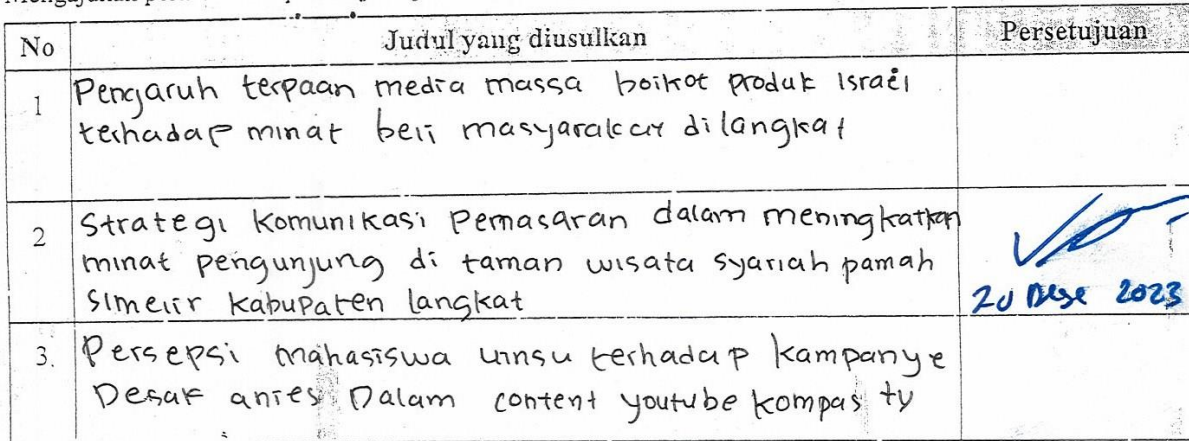 No Judul yang diusulkan Persetujuan
1 Pengaruh terpaan media massa boikot produk Israel
terhadap minat beli masyarakat di langkat
2 Strategi Komunikasi Pemasaran dalam meningkatkan
minat pengunjung di taman wisata syariah pamah
simelir Kabupaten langkat
20 Dese 2023
3. Persepsi mahasiswa uinsu terhadap kampanye
Desak anies Dalam content youtube kompas tv